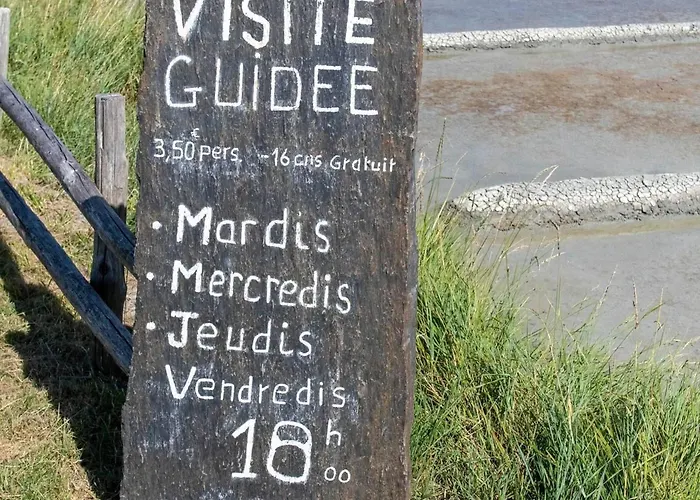 VISITE
GUIDEE
3,50€ pers. -16 ans Gratuit
• Mardis
• Mercredis
• Jeudis
Vendredis
18h00